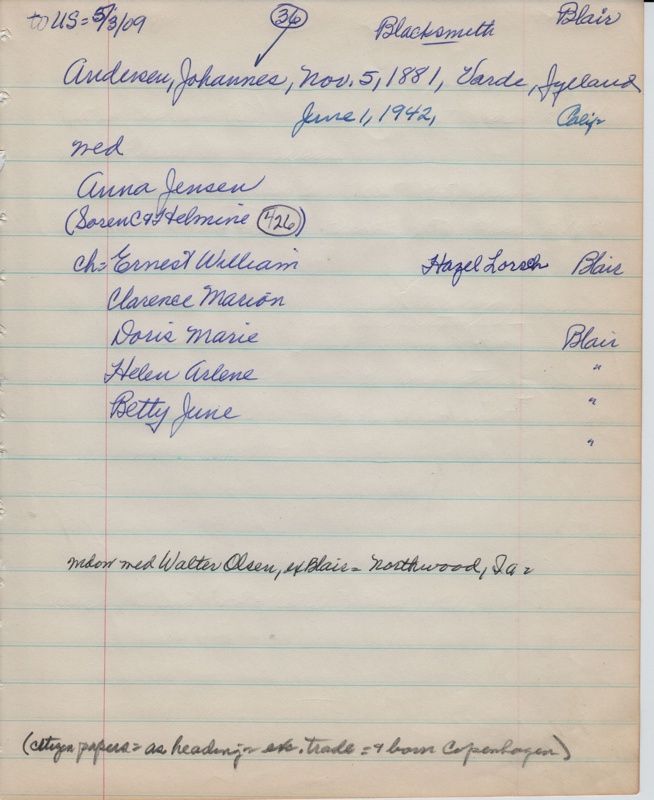 to US = 5/3/09 36 Blacksmith Blair
Andersen, Johannes, Nov. 5, 1881, Varde, Jylland
June 1, 1942, Calif-
med
Anna Jensen
(Soren C & Helmine 426)
ch = Ernest William Hazel Lorsch Blair
Clarence Marion
Doris Marie Blair
Helen Arlene "
Betty June "
"
med Walter Olsen, ex Blair = Northwood, Ia =
(citizen papers = as heading = exc. trade = & born Copenhagen)